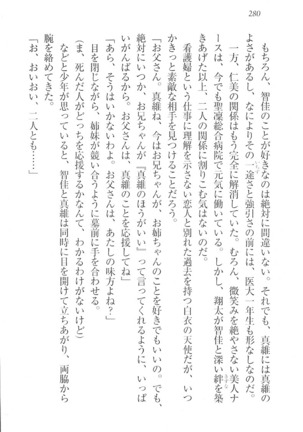 280
もちろん、智佳のことが好きなのは絶対に間違いない。それでも、真維には真維の
よさがあるし、それになによりその一途さと強引さの前には、医大一年生も形なしなのだ。
一方、仁美との関係はもう完全に解消していた。むろん、微笑みを絶やさない美人ナ
ースは、今でも聖凛総合病院で元気に働いている。しかし、翔太が智佳と深い絆を築
きあげた以上、二人の関係に割りこむ気はないのだ。
看護婦という仕事に理解を示さない恋人と別れた過去を持つ白衣の天使だが、いつ
かきっと素敵な相手を見つけることだろう。
「お父さん、真維ね、今はお兄ちゃんが、お姉ちゃんのことを好きでもいいの。でも、
絶対にいつか、お兄ちゃんが『真維のほうがいい』って言ってくれるように、いっぱ
いがんばるから。お父さんは、真維のことを応援してね」
「あら、そうはいかないわよ。お父さんは、あたしの味方よね？」
目を閉じながら、姉妹が競い合うように墓前に手を合わせる。
(ま、死んだ人がどっちを応援するかなんて、わかるわけがないけど)
などと少年が思っていると、智佳と真維は同時に目を開けて立ちあがり、両脇から
腕を絡めてきた。
「お、おいおい、二人とも……」